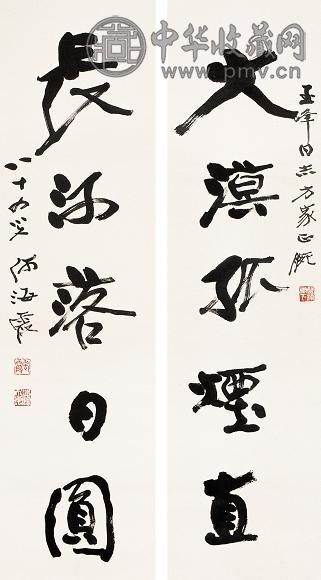 中华收藏网
www.pmv.cn
玉峰同志方家正腕
大漠孤煙直
長河落日圓
八十九叟何海霞